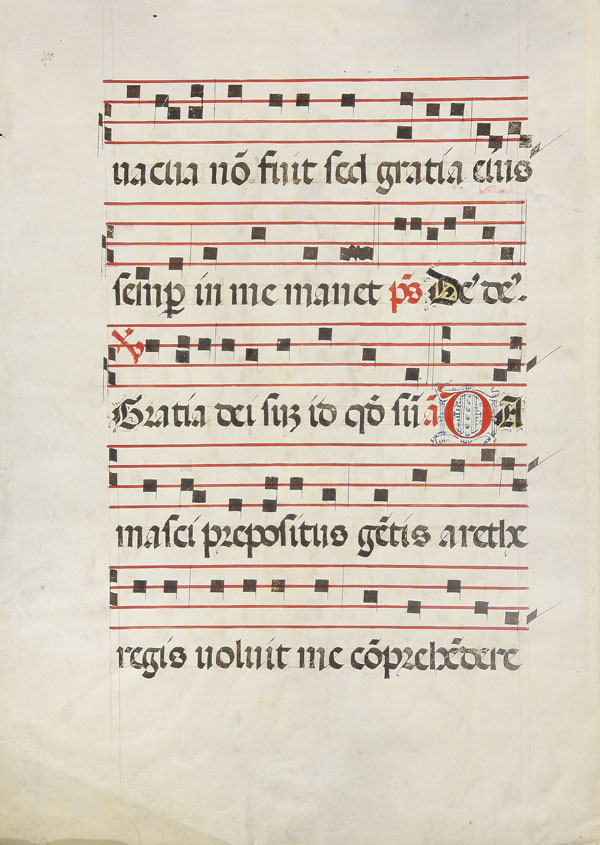 uacua nō fuit sed gratia eius
semp̱ in me manet p̄s De' de'.
Gratia dei suꝫ id qō sū ā D A
masci prepositus gētis arethe
regis uoluit me cōprehēdere